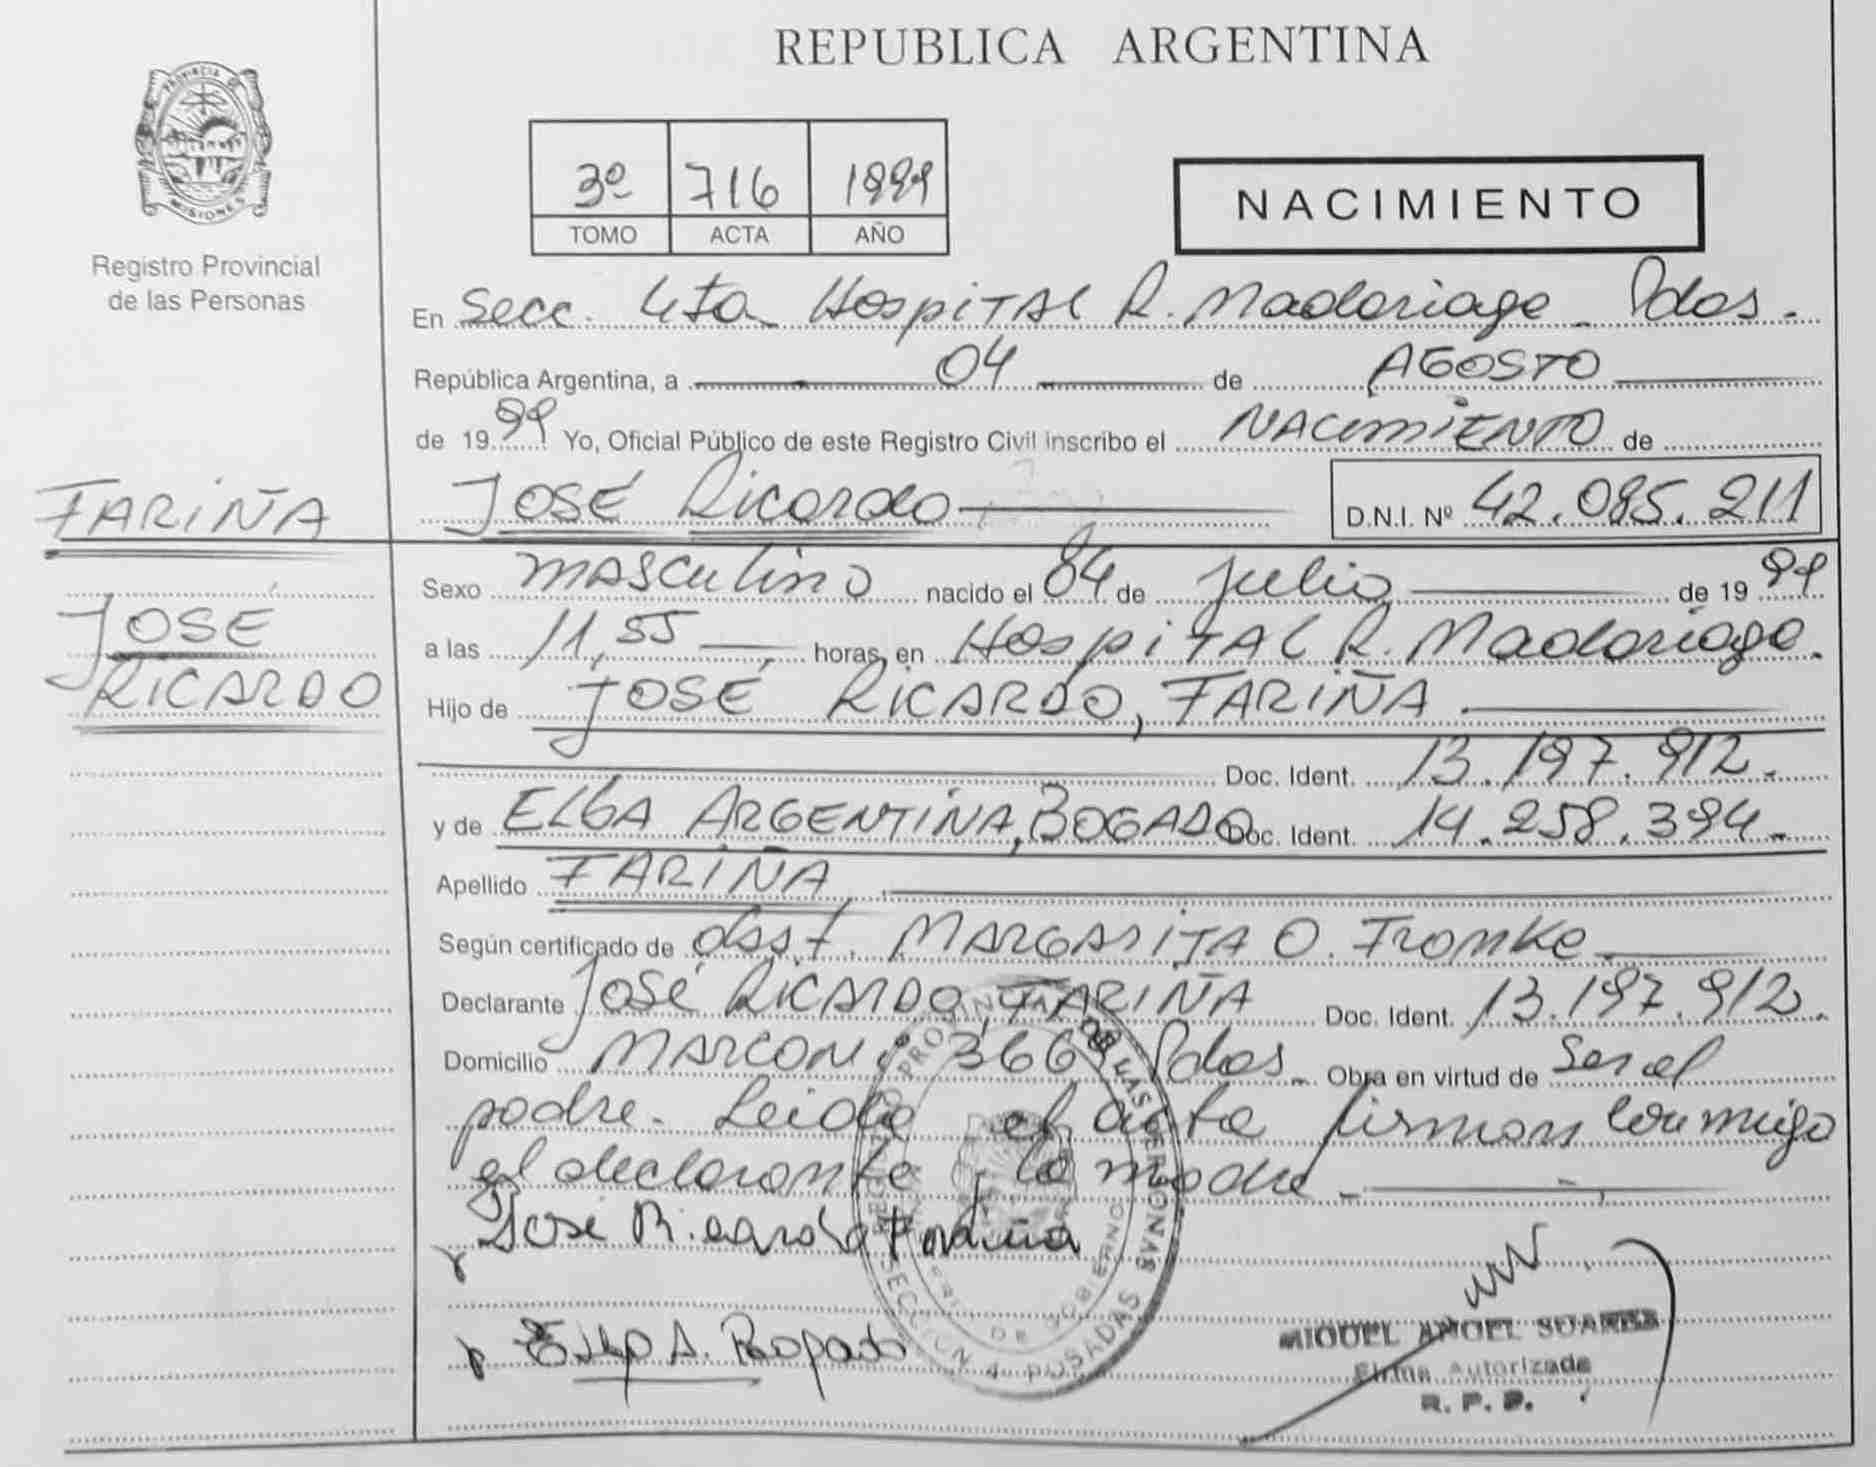 REPUBLICA ARGENTINA
PROVINCIA DE MISIONES
Registro Provincial
de las Personas
3º 716 1999
TOMO ACTA AÑO
NACIMIENTO
En Secc. 4ta Hospital R. Madariaga - Pdas.
República Argentina, a 04 de AGOSTO
de 1999 Yo, Oficial Público de este Registro Civil inscribo el NACIMIENTO de
FARIÑA
JOSÉ Ricardo D.N.I. Nº 42.085.211
JOSÉ
RICARDO
Sexo masculino nacido el 04 de julio de 1999
a las 11,55 horas, en Hospital R. Madariaga.
Hijo de JOSÉ RICARDO, FARIÑA
Doc. Ident. 13.197.912.
y de ELBA ARGENTINA, BOGADO Doc. Ident. 14.258.394.
Apellido FARIÑA
Según certificado de obst. MARGARITA O. Fromke
Declarante José RICARDO, FARIÑA Doc. Ident. 13.197.912.
Domicilio MARCONI Pdas. Obra en virtud de Ser el
padre. Leida el acta firman conmigo
el declarante y la madre.
José Ricardo Fariña
A. Bogado
MIGUEL ANGEL SUAREZ
Firma Autorizada
R. P. P.
REGISTRO PROVINCIAL DE LAS PERSONAS
SECCION 4 POSADAS
DE GOBIERNO